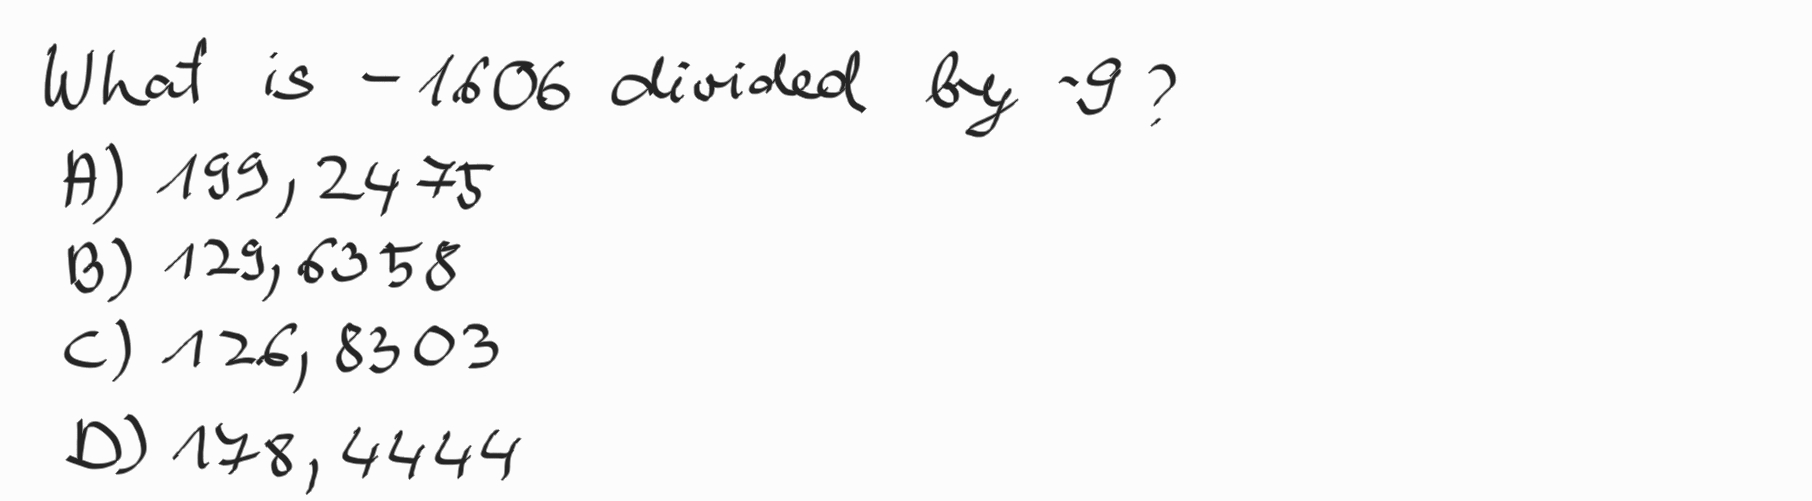 What is -1606 divided by -9?
A) 199,2475
B) 129,6358
C) 126,8303
D) 178,4444